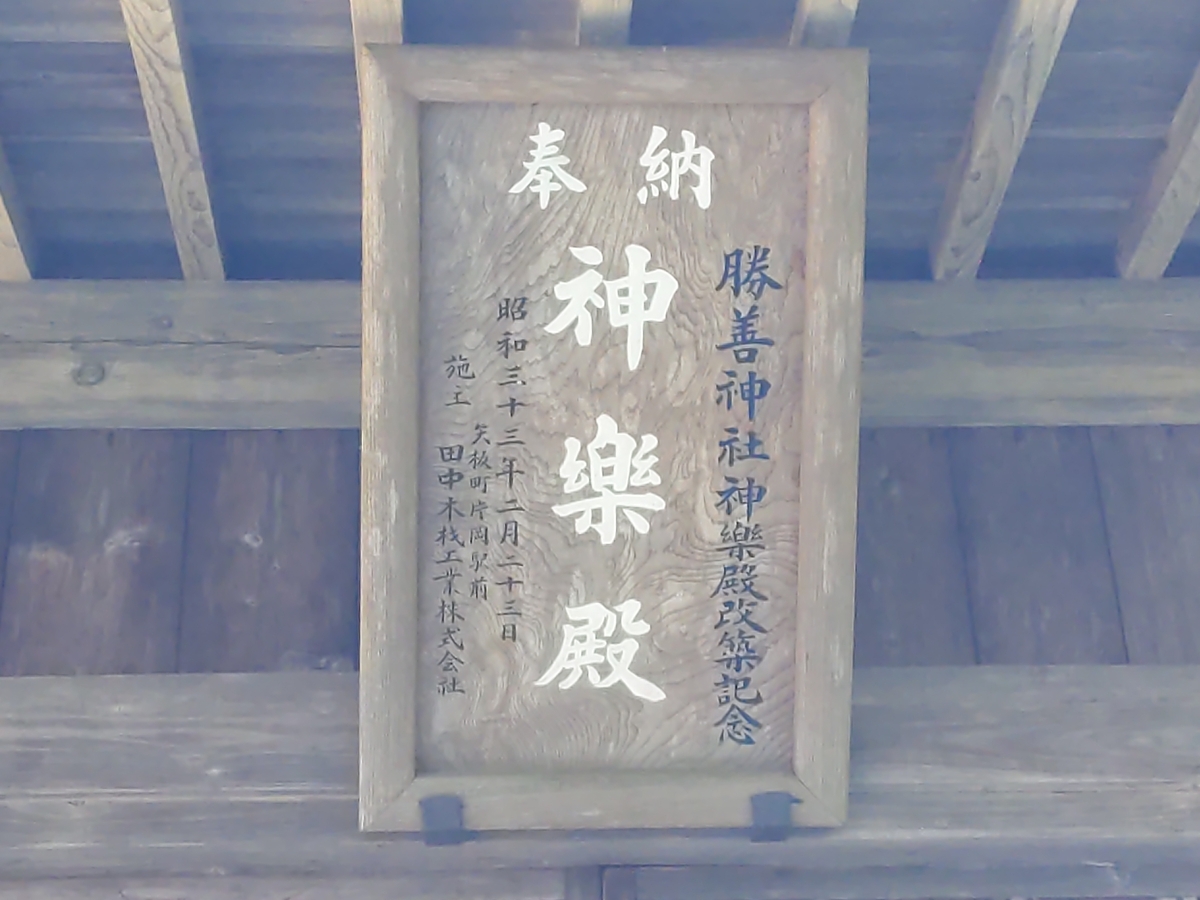 奉納
勝善神社神樂殿改築記念
神樂殿
昭和三十三年二月二十三日
矢板町片岡駅前
施主 田中木栈工業株式会社